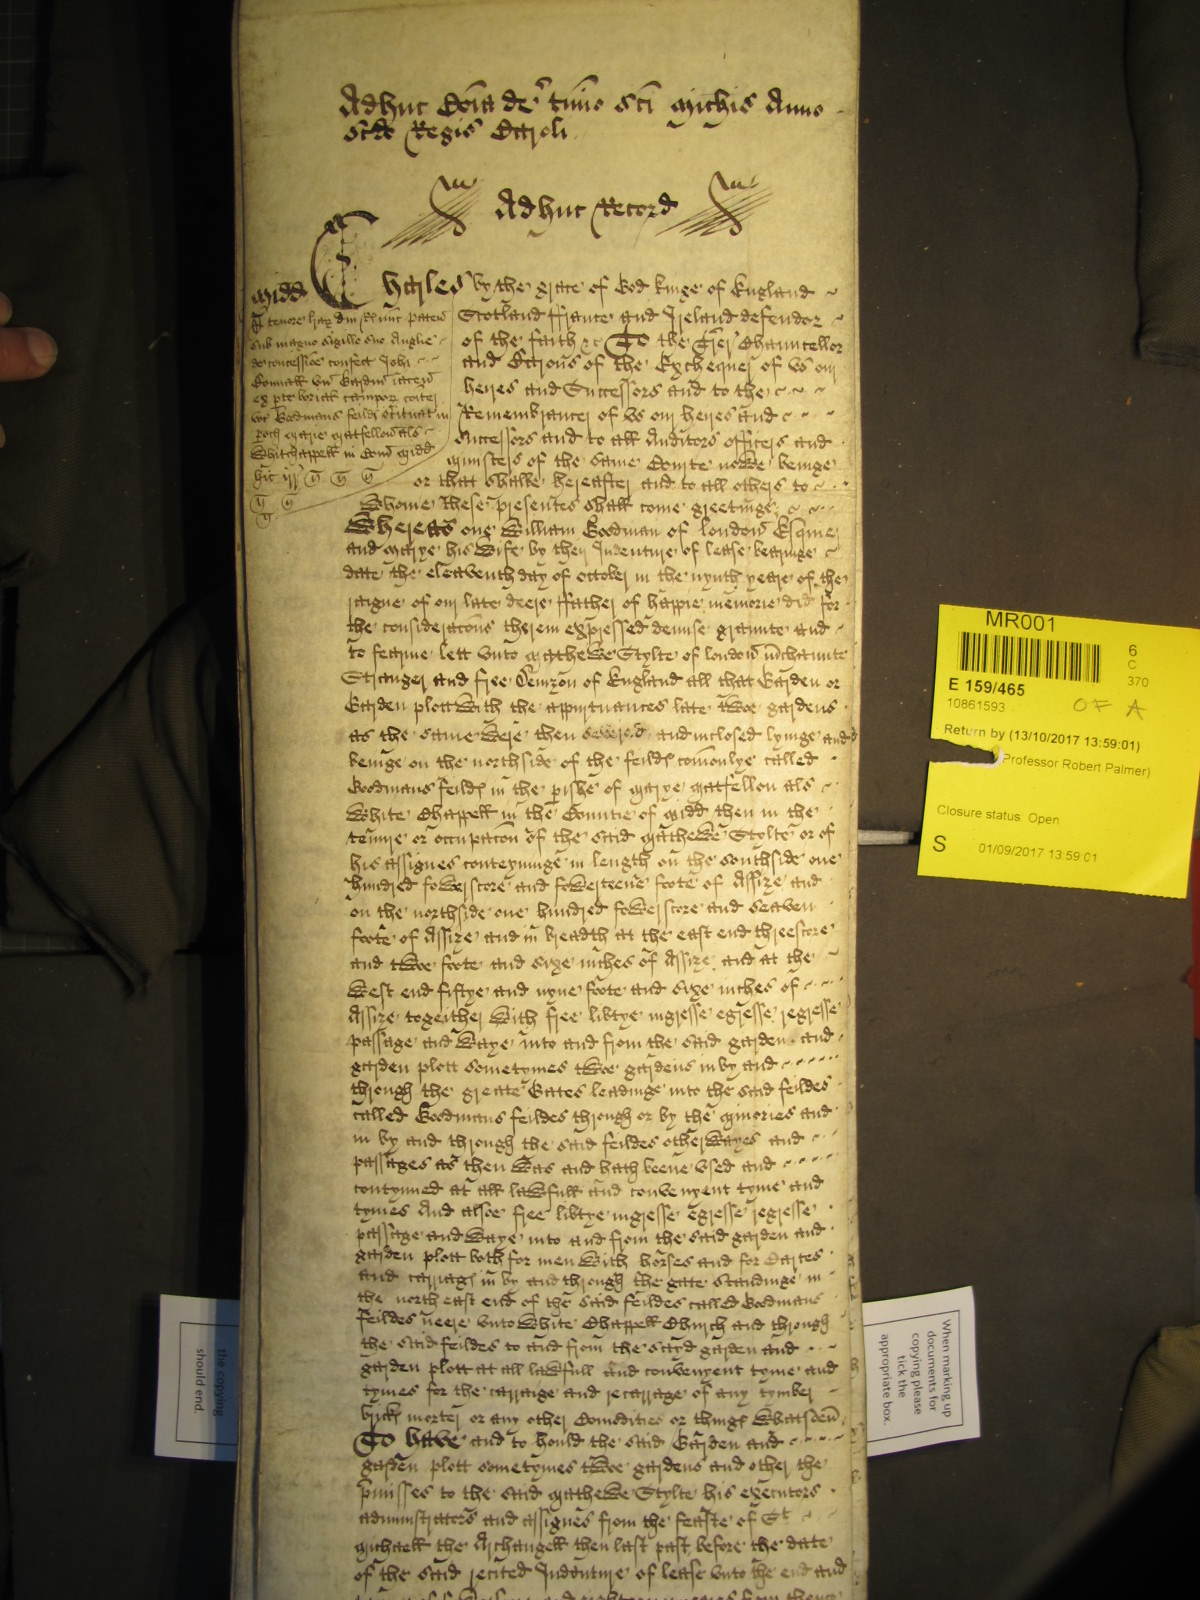 Adhuc Cōia de tmīo Sci Michis Anno
scdo Regis Caroli
Adhuc Record
Midd
Charles by the grace of God kinge of England
Scotland ffrance and Ireland defendor
of the faith &c To the Trer Chauncellor
and Barons of the Exchequer of vs our
heires and Successors and to the
Remembrancer of vs our heires and
Successors and to all Auditors officers and
ministers of the same Courte nowe beinge
or that shalbe hereafter and to all others to
whome these presentes shall come greetinge
Whereas one William Goodman of london Esquier
and Marye his wife by their Indenture of lease bearinge
date the eleaventh day of october in the nynth yeare of the
raigne of our late deere ffather of happie memorie did for
the consideracōns therein expressed demise graunte and
to fearme lett vnto Mathewe Stylte of london mchaunte
Stranger and free Denizon of England all that Garden or
Garden plott with the appurtunances late twoe gardens
as the same were then severed and inclosed lyinge and
beinge on the northside of the feilds comōnlye called
Goodmans feilds in the pishe of Marye Matfellon als
White Chappell in the Countie of Midd then in the
tenure or occupacōn of the said Mathewe Stylte or of
his assignes conteyninge in length on the southside one
hundred fowerscore and fowerteene foote of Assize and
on the northside one hundred fowerscore and seaven
foote of Assize and in breadth at the east end threescore
and twoe foote and sixe inches of Assize and at the
west end fiftye and nyne foote and sixe inches of
Assize togeither with free libtye ingresse egresse regresse
passage and waye into and from the said garden and
garden plott sometymes twoe gardens in by and
through the greate Gates leadinge into the said feildes
called Goodmans feildes through or by the Minories and
in by and through the said feildes other wayes and
passages as then was and hath beene vsed and
contynued at all lawfull and convenyent tyme and
tymes And alsoe free libtye ingresse egresse regresse
passage and waye into and from the said garden and
garden plott both for men with horses and for Cartes
and carriags in by and through the gate standinge in
the north east end of the said feildes called Goodmans
feildes neere vnto White Chappell Church and through
the said feildes to and from the sayd garden and
garden plott at all lawfull and convenyent tyme and
tymes for the carraige and recarriage of any tymber
brick morter or any other Comodities or things whatsoeu
To have and to hould the said Garden and
garden plott sometymes twoe gardens and other the
pmisses to the said Mathewe Stylte his executors
administrators and assignes from the feaste of St
Michaell the Archangell then last past before the date
of the said recited Indenture of lease vnto the end and
MR001
6
C
370
E 159/465
10861593
OF A
Return by (13/10/2017 13:59:01)
Professor Robert Palmer)
Closure status: Open
S
01/09/2017 13:59:01
the copying
should end.
When marking up
documents for
copying please
tick the
appropriate box.